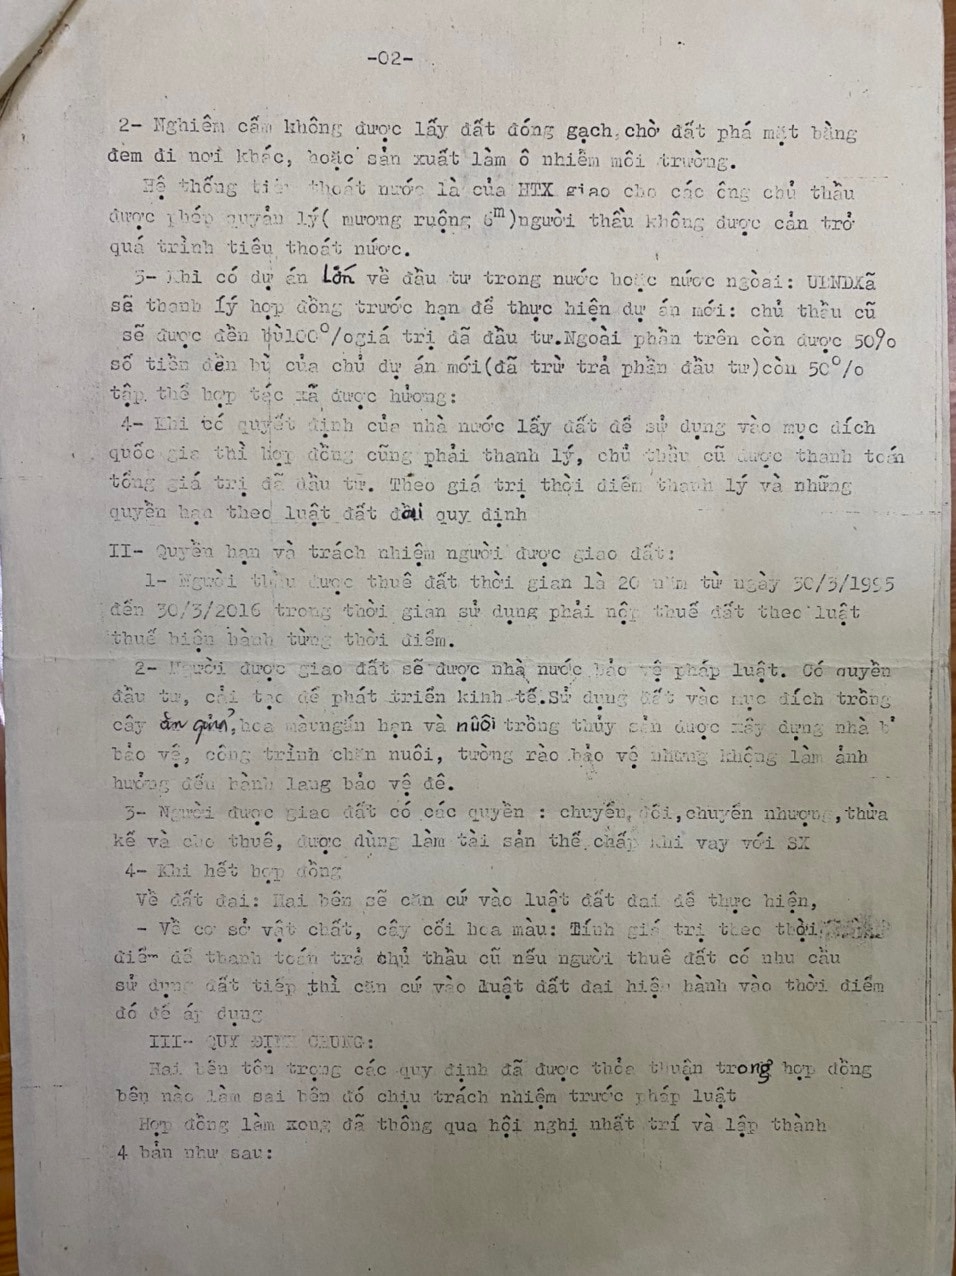 -02-
2- Nghiêm cấm không được lấy đất đóng gạch chờ đất phá mặt bằng
đem đi nơi khác, hoặc sản xuất làm ô nhiễm môi trường.
Hệ thống tiêu thoát nước là của HTX giao cho các ông chủ thầu
được phép quyản lý( mương ruộng 6m)người thầu không được cản trở
quá trình tiêu thoát nước.
3- Khi có dự án Lớn về đầu tư trong nước hoặc nước ngoài: UBNDXã
sẽ thanh lý hợp đồng trước hạn để thực hiện dự án mới: chủ thầu cũ
sẽ được đền bù100%giá trị đã đầu tư.Ngoài phần trên còn được 50%
số tiền đền bù của chủ dự án mới(đã trừ trả phần đầu tư)còn 50%
tập thể hợp tác xã được hưởng:
4- Khi có quyết định của nhà nước lấy đất để sử dụng vào mục đích
quốc gia thì hợp đồng cũng phải thanh lý, chủ thầu cũ được thanh toán
tổng giá trị đã đầu tư. Theo giá trị thời điểm thanh lý và những
quyền hạn theo luật đất đai quy định
II- Quyền hạn và trách nhiệm người được giao đất:
1- Người thầu được thuê đất thời gian là 20 năm từ ngày 30/3/1995
đến 30/3/2016 trong thời gian sử dụng phải nộp thuế đất theo luật
thuế hiện hành từng thời điểm.
2- Người được giao đất sẽ được nhà nước bảo vệ pháp luật. Có quyền
đầu tư, cải tạo để phát triển kinh tế.Sử dụng đất vào mục đích trồng
cây ăn quả,hoa màungắn hạn và nuôi trồng thủy sản được xây dựng nhà
bảo vệ, công trình chăn nuôi, tường rào bảo vệ nhưng không làm ảnh
hưởng đến hành lang bảo vệ đê.
3- Người được giao đất có các quyền : chuyển đổi,chuyển nhượng,thừa
kế và cho thuê, được dùng làm tài sản thế chấp khi vay vốn SX
4- Khi hết hợp đồng
Về đất đai: Hai bên sẽ căn cứ vào luật đất đai để thực hiện,
- Về cơ sở vật chất, cây cối hoa màu: Tính giá trị theo thời
điểm để thanh toán trả chủ thầu cũ nếu người thuê đất có nhu cầu
sử dụng đất tiếp thì căn cứ vào luật đất đai hiện hành vào thời điểm
đó để áp dụng
III- QUY ĐỊNH CHUNG:
Hai bên tôn trọng các quy định đã được thỏa thuận trong hợp đồng
bên nào làm sai bên đó chịu trách nhiệm trước pháp luật
Hợp đồng làm xong đã thông qua hội nghị nhất trí và lập thành
4 bản như sau: